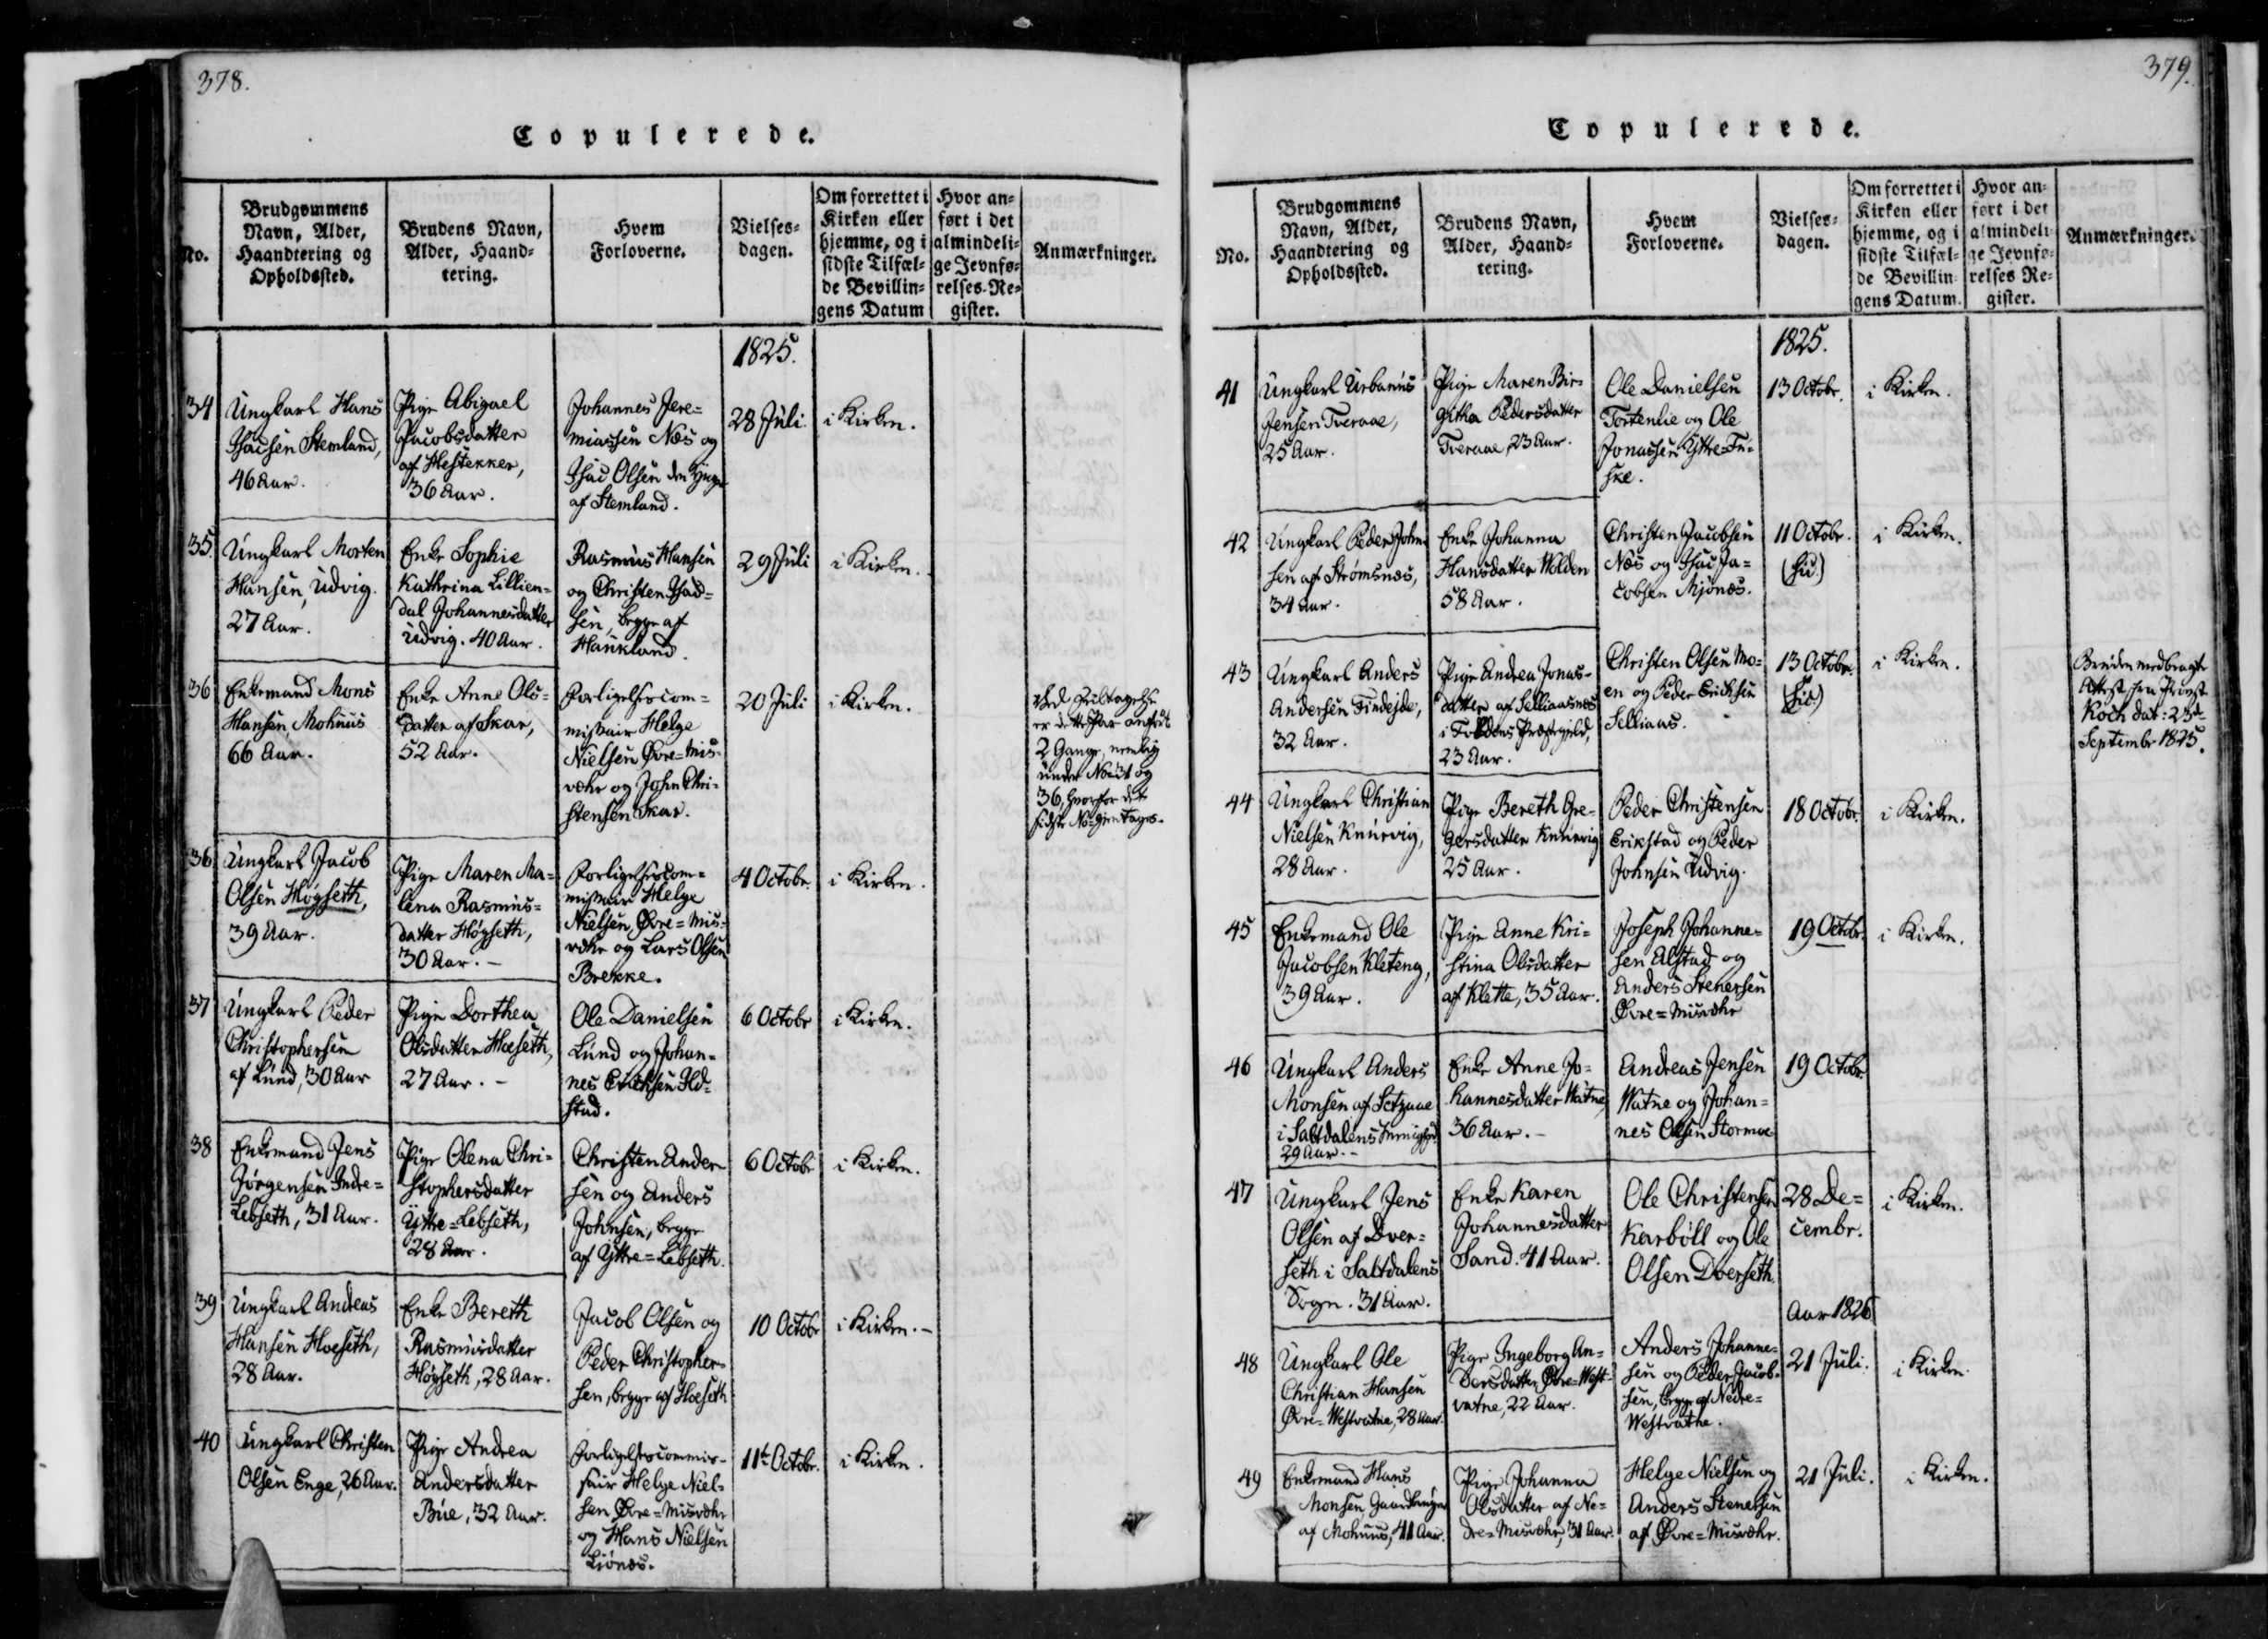 378.
Copulerede.
No.
Brudgommens
Navn, Alder,
Haandtering og
Opholdssted.
Brudens Navn,
Alder, Haand-
tering.
Hvem
Forloverne.
Vielses-
dagen.
Om forrettet i
Kirken eller
hjemme, og i
sidste Tilfæl-
de Bevillin-
gens Datum
Hvor an-
ført i det
almindeli-
ge Jevnfø-
relses-Re-
gister.
Anmærkninger.
1825.
34
Ungkarl Hans
Isacsen Stemland,
46 Aar.
Pige Abigael
Jacobsdatter
af Hestekker,
36 Aar.
Johannes Jere=
miassen Næs og
Isac Olsen den Yngre
af Stemland.
28 Juli.
i Kirken.
35.
Ungkarl Morten
Hansen, Udvig.
27 Aar.
Enke Sophie
Kathrina Lillien-
dal Johannesdatter
Udvig. 40 Aar.
Rasmus Hansen
og Christen Isac-
sen, begge af
Haukland.
29 Juli
i Kirken.
36
Enkemand Mons
Hansen, Mohuus
66 Aar.
Enke Anne Ols-
datter af Skar,
52 Aar.
Forligelsescom=
missair Helge
Nielsen Øvre=Mis-
vær og John Chri-
stensen Skar.
20 Juli
i Kirken.
Ved
er dette Par anført
2 Gange, nemlig
under No 31 og
36, hvorfor det
sidste No igien tages.
36
Ungkarl Jacob
Olsen Høyseth,
39 Aar.
Pige Maren Ma-
lena Rasmus=
datter Høyseth,
30 Aar. -
Forligelsescom=
missair Helge
Nielsen Øvre=Mis-
vær og Lars Olsen
Brekke.
4 Octobr.
i Kirken.
37
Ungkarl Peder
Christophersen
af Lund, 30 Aar
Pige Dorthea
Olsdatter Hoeseth,
27 Aar. -
Ole Danielsen
Lund og Johan-
nes Ericksen Ild-
stad.
6 Octobr
i Kirken.
38
Enkemand Jens
Jørgensen Indre=
Lebseth, 31 Aar.
Pige Olena Chri-
stophersdatter
Yttre=Lebseth,
28 Aar.
Christen Ander-
sen og Anders
Johnsen, begge
af Yttre=Lebseth.
6 Octobr
i Kirken.
39
Ungkarl Andreas
Hansen Hoeseth,
28 Aar.
Enke Bereth
Rasmusdatter
Høyseth, 28 Aar.
Jacob Olsen og
Peder Christopher-
sen, begge af Hoeseth
10 Octobr
i Kirken. -
40
Ungkarl Christen
Olsen Enge, 26 Aar.
Pige Andrea
Andersdatter
Bue, 32 Aar.
Forligelsescommis-
sair Helge Niel-
sen Øvre=Misvær
og Hans Nielsen
Liønæs.
11te Octobr.
i Kirken.
379.
Copulerede.
No.
Brudgommens
Navn, Alder,
Haandtering og
Opholdssted.
Brudens Navn,
Alder, Haand-
tering.
Hvem
Forloverne.
Vielses-
dagen.
Om forrettet i
Kirken eller
hjemme, og i
sidste Tilfæl-
de Bevillin-
gens Datum.
Hvor an-
ført i det
almindeli-
ge Jevnfø-
relses Re-
gister.
Anmærkninger.
1825.
41
Ungkarl Urbanus
Jensen Tveraae,
25 Aar.
Pige Maren Bir-
githa Pedersdatter
Tveraae, 23 Aar.
Ole Danielsen
Tortenlie og Ole
Jonassen Yttre=Fu-
ske.
13 Octobr.
i Kirken.
42
Ungkarl Peder John-
sen af Strømsnæs,
34 Aar.
Enke Johanna
Hansdatter Wolden
58 Aar.
Christen Jacobsen
Næs og Isac Ja-
cobsen Mjønæs.
11 Octobr.
(sic.)
i Kirken.
43
Ungkarl Anders
Andersen Findejde,
32 Aar.
Pige Andrea Jonas-
datter af Selliaasnæs
i Foldens Præstegield,
23 Aar.
Christen Olsen Mo-
en og Peder Ericksen
Selliaas.
13 Octobr.
(sic.)
i Kirken.
Bruden medbragte
Attest fra Provst
Koch dat: 23de
Septembr 1825.
44
Ungkarl Christian
Nielsen Knurvig,
28 Aar.
Pige Bereth Gre-
gersdatter Knurvig
25 Aar.
Peder Christensen
Erikstad og Peder
Johnsen Udvig.
18 Octobr.
i Kirken.
45
Enkemand Ole
Jacobsen Kleteng,
39 Aar.
Pige Anne Kri-
stina Olsdatter
af Klette, 35 Aar.
Joseph Johanne-
sen Alstad og
Anders Stenersen
Øvre=Misvær
19 Octobr.
i Kirken.
46
Ungkarl Anders
Monsen af Setzaae
i Saltdalens
29 Aar. -
Enke Anne Jo-
hannesdatter Watne,
36 Aar. -
Andreas Jensen
Watne og Johan-
nes Olsen Stormoe
19 Octobr.
47
Ungkarl Jens
Olsen af Dver-
seth i Saltdalens
Sogn. 31 Aar.
Enke Karen
Johannesdatter
Sand. 41 Aar.
Ole Christensen
Karbøll og Ole
Olsen Dverseth.
28 De=
cembr.
i Kirken.
Aar 1826
48
Ungkarl Ole
Christian Hansen
Øvre=Westvatne, 28 Aar.
Pige Ingeborg An-
dersdatter Øvre=West-
vatne, 22 Aar.
Anders Johanne-
sen og Peder Jacob-
sen, begge af Nedre=
Westvathe.
21 Juli.
i Kirken.
49
Enkemand Hans
Monsen, Gaardbruger
af Mohuus, 41 Aar.
Pige Johanna
Olsdatter af Ne-
dre=Misvær, 31 Aar.
Helge Nielsen og
Anders Stenersen
af Øvre=Misvær.
21 Juli.
i Kirken.